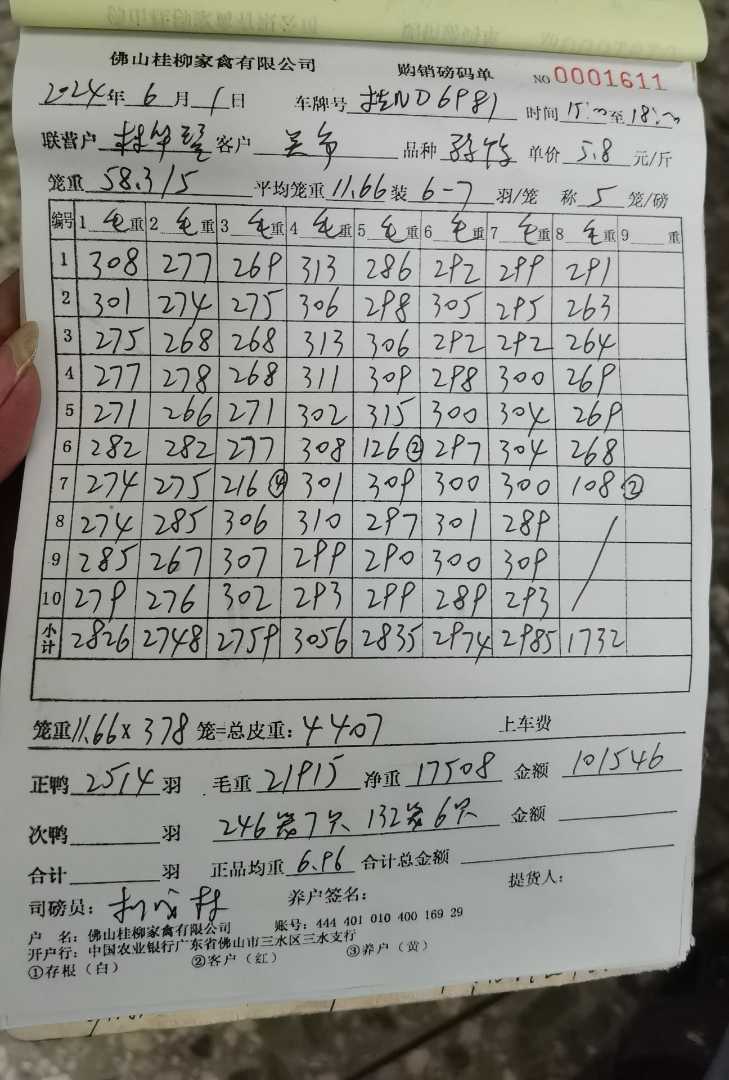 佛山桂柳家禽有限公司 购销磅码单 NO 0001611
2024年 6 月 1 日 车牌号 桂ND6981 时间 15:00 至 18:00
联营户 客户 品种 单价 5.8 元/斤
笼重 58.3/5 平均笼重 11.66 装 6-7 羽/笼 称 5 笼/磅
编号 1 毛重 2 毛重 3 毛重 4 毛重 5 毛重 6 毛重 7 毛重 8 毛重 9 重
1 308 277 269 313 286 292 299 291
2 301 274 275 306 298 305 295 263
3 275 268 268 313 306 292 292 264
4 277 278 268 311 309 298 300 269
5 271 266 271 302 315 300 304 269
6 282 282 277 308 126② 297 304 268
7 274 275 216④ 301 309 300 300 108②
8 274 285 306 310 297 301 289
9 285 267 307 299 290 300 309
10 279 276 302 293 299 289 293
小计 2826 2748 2759 3056 2835 2974 2985 1732
笼重 11.66 × 378 笼=总皮重: 4407 上车费
正鸭 2514 羽 毛重 21915 净重 17508 金额 101546
次鸭 羽 246笼7只 132笼6只 金额
合计 羽 正品均重 6.96 合计总金额
司磅员: 养户签名: 提货人:
户 名: 佛山桂柳家禽有限公司 账号: 444 401 010 400 169 29
开户行: 中国农业银行广东省佛山市三水区三水支行
①存根(白) ②客户(红) ③养户(黄)